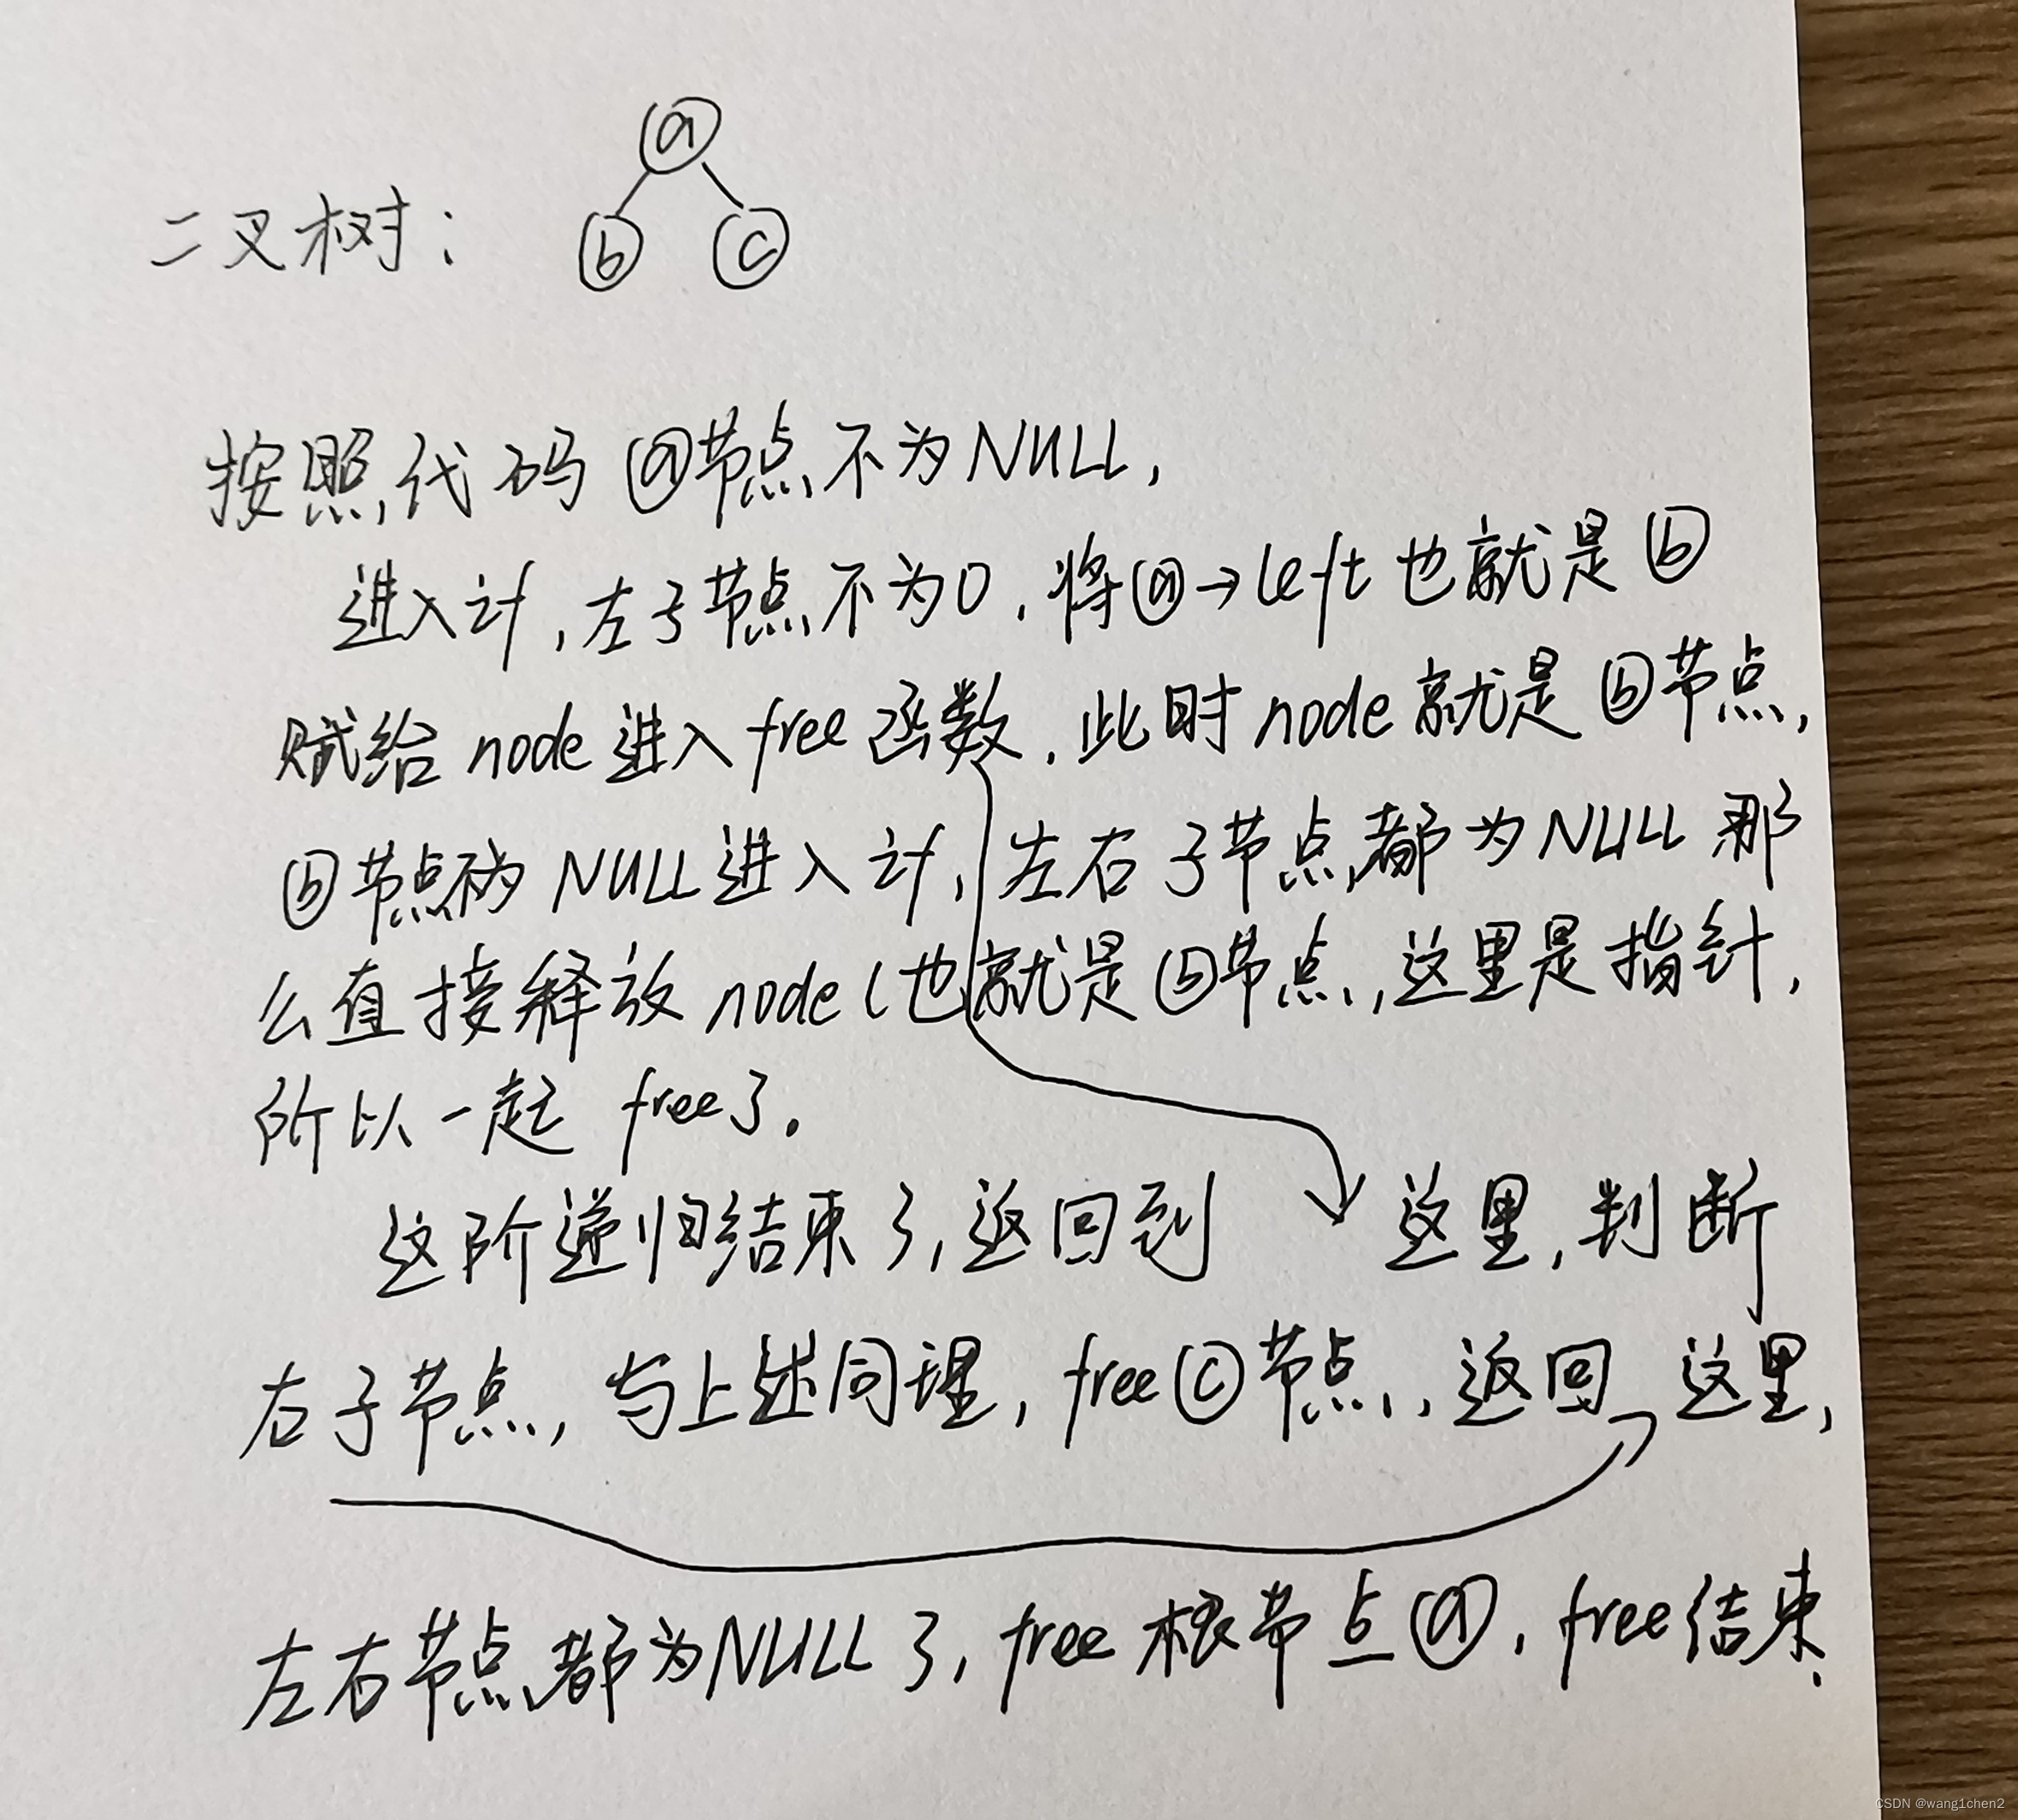 a
二叉树：
b c
按照代码ⓐ节点不为NULL，
进入计，左子节点不为0，将ⓐ→left也就是ⓑ
赋给node进入free函数，此时node就是ⓑ节点，
ⓑ节点不为NULL进入计，左右子节点都为NULL那
么直接释放node（也就是ⓑ节点，这里是指针，
所以一起free了。
这阶递归结束了，返回到 这里，判断
右子节点，与上述同理，freeⓒ节点，返回 这里，
左右节点都为NULL了，free根节点ⓐ，free结束.
CSDN @wang1chen2